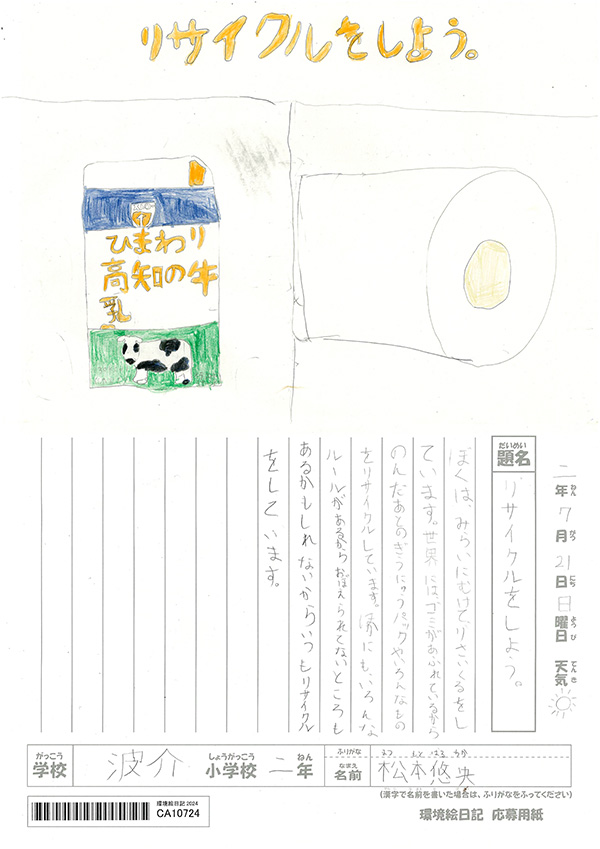 リサイクルをしよう。
ひまわり
高知の牛
乳
二年7月21日日曜日 天気
ねん がつ にち ようび てんき
だいめい
題名
リサイクルをしよう。
ぼくは、みらいにむけてりさいくるをし
ています。世界にはゴミがあふれているから
のんだあとのぎゅうにゅうパックやいろんなもの
をリサイクルしています。ほかにも、いろんな
ルールがあるからおぼえられてないところも
あるかもしれないからいつもリサイクル
をしています。
がっこう
学校
波介
しょうがっこう
小学校
二
ねん
年
ふりがな
なまえ
名前
松本悠央
(漢字で名前を書いた場合は、ふりがなをふってください)
環境絵日記2024
CA10724
環境絵日記 応募用紙